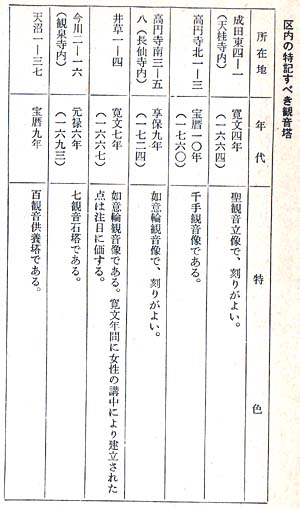 区内の特記すべき観音塔
所在地
年代
特色
成田東四—一
(天桂寺内)
寛文四年
(一六六四)
聖観音立像で、刻りがよい。
高円寺北一—三
宝暦一〇年
(一七六〇)
千手観音像である。
高円寺南三—五
八(長仙寺内)
享保九年
(一七二四)
如意輪観音像で、刻りがよい。
井草一—四
寛文七年
(一六六七)
如意輪観音像である。寛文年間に女性の講中により建立された
点は注目に価する。
今川二—一六
(観泉寺内)
元禄六年
(一六九三)
七観音石塔である。
天沼一—三七
宝暦九年
百観音供養塔である。